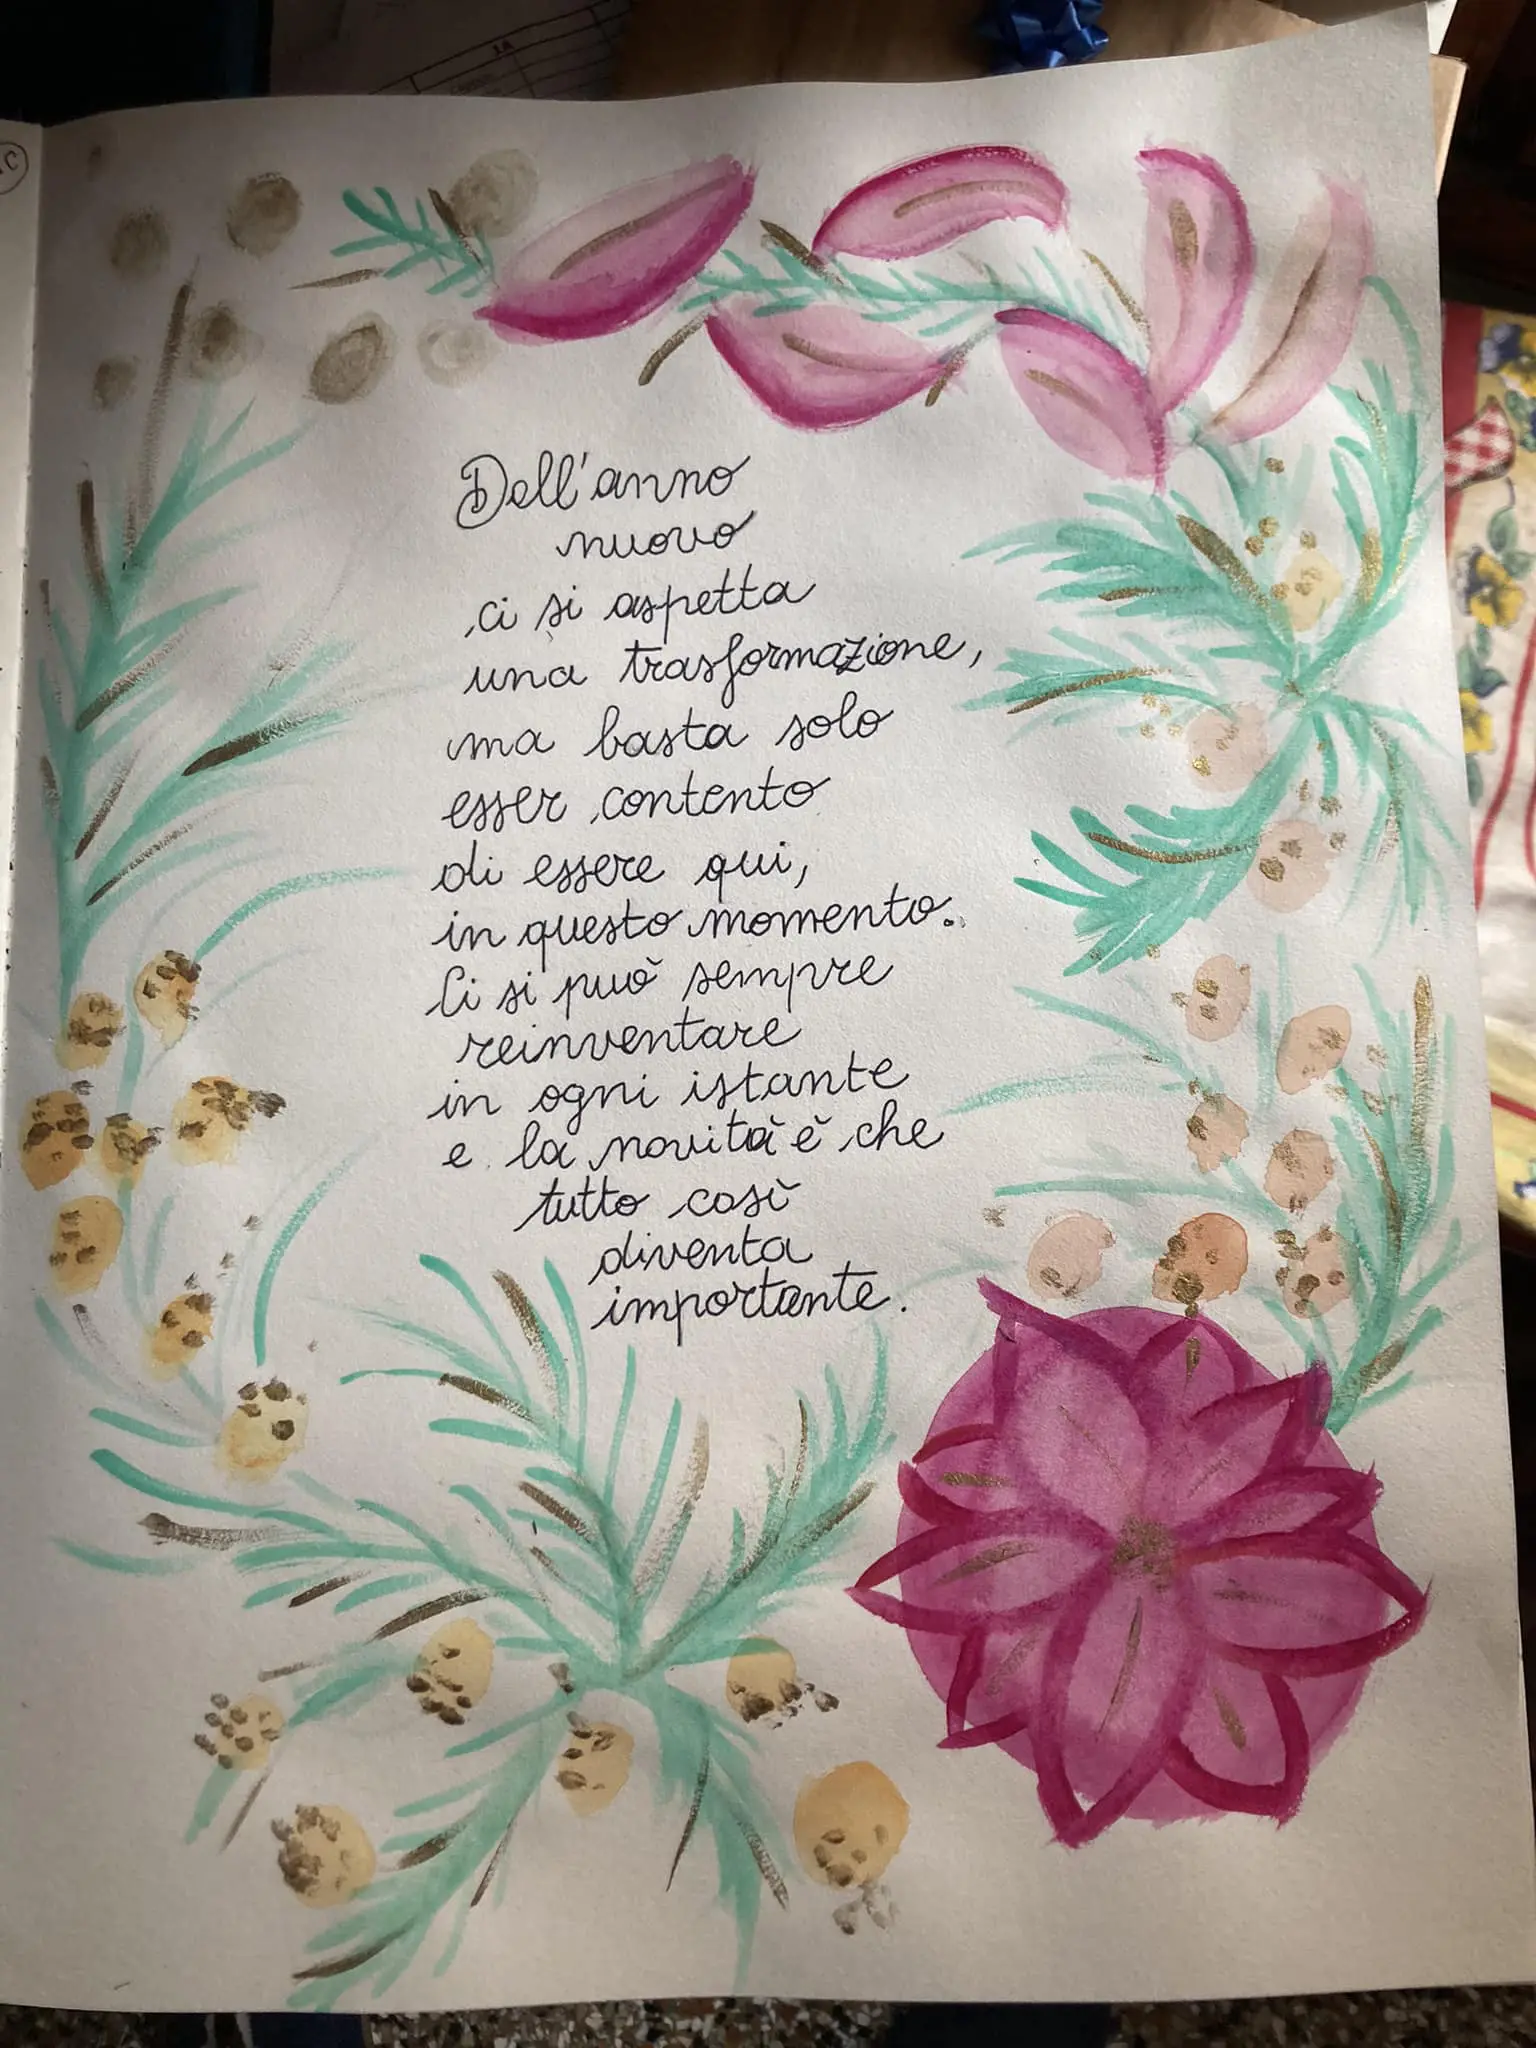 Dell'anno
nuovo
ci si aspetta
una trasformazione,
ma basta solo
esser contento
di essere qui,
in questo momento.
Ci si può sempre
reinventare
in ogni istante
e la novità è che
tutto così
diventa
importante.